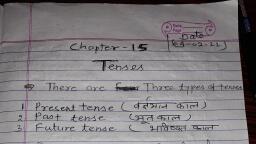 Date
Page
Date
03-02-22
Chapter - 15
Tenses
There are Three types of tenses
1 Present tense ( वर्तमान काल )
2 Past tense ( भूत काल )
3 Future tense ( भविष्यत काल